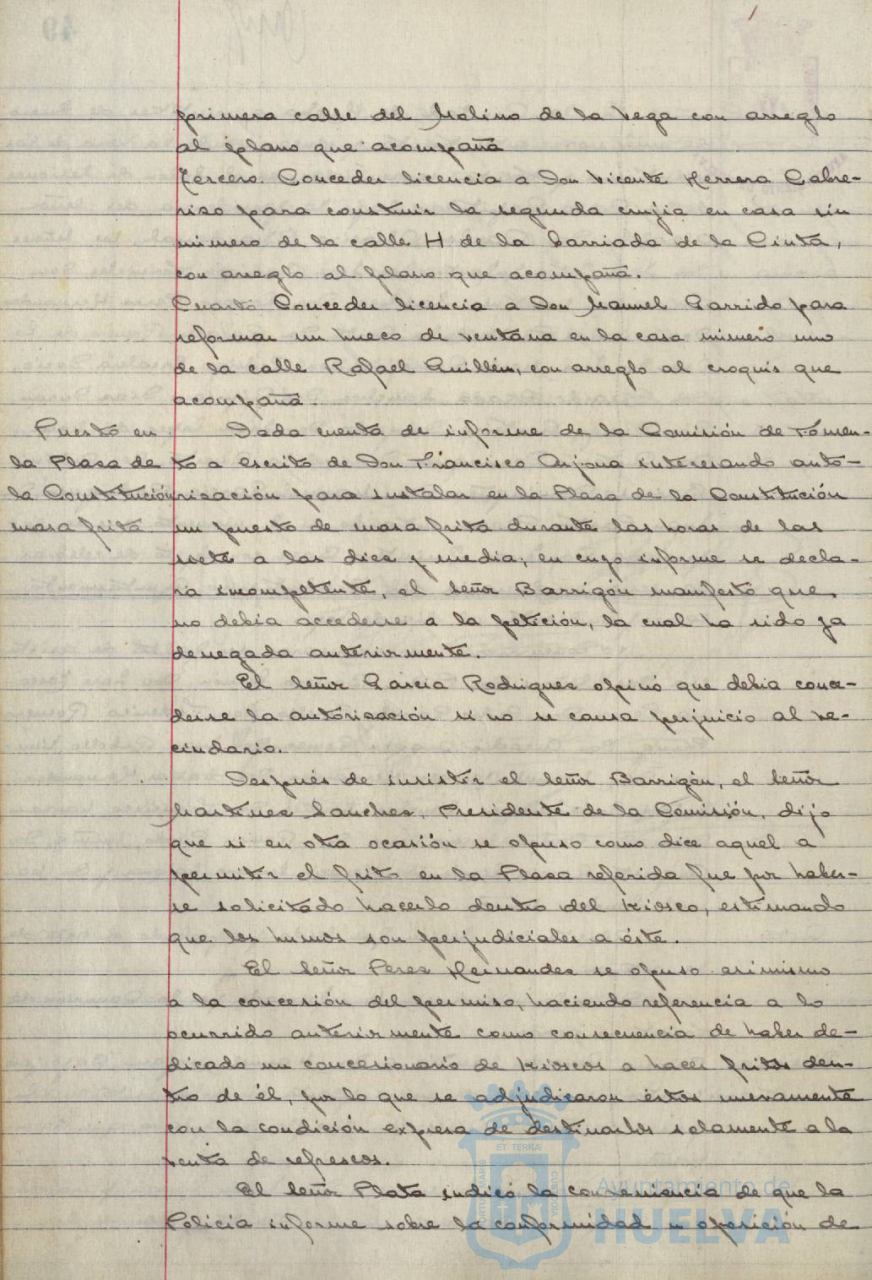 primera calle del Molino de la Vega con arreglo
al plano que acompaña
Tercero. Conceder licencia a Don Vicente Herrera Cabre-
rizo para construir la segunda crujia en casa sin
número de la calle H de la barriada de la Cinta,
con areglo al plano que acompaña.
Cuarto Conceder licencia a Don Manuel Garrido para
reformar un hueco de ventana en la casa número uno
de la calle Rafael Guillén, con arreglo al croquis que
acompaña.
Puesto en
la Plaza de
la Constitución
masa frita
Dada cuenta de informe de la Comisión de Fomen-
to a escrito de Don Francisco Arjona interesando auto-
rización para instalar en la Plaza de la Constitución
un puesto de masa frita durante las horas de las
siete a las diez y media, en cuyo informe se decla-
ra incompetente, el señor Barrigón manifestó que
no debia accederse a la petición, la cual ha sido ya
denegada anteriormente.
El señor García Rodriguez opinó que debia conce-
derse la autorización si no se causa perjuicio al ve-
cindario.
Después de insistir el señor Barrigón, el señor
Martinez Sanchez, Presidente de la Comisión, dijo
que si en otra ocasión se opuso como dice aquel a
permitir el frito en la Plaza referida fue por haber-
se solicitado hacerlo dentro del kiosco, estimando
que los humos son perjudiciales a éste.
El señor Perez Hernandez se opuso asimismo
a la concesión del permiso, haciendo referencia a lo
ocurrido anteriormente como consecuencia de haber de-
dicado un concesionario de kioscos a hacer fritos den-
tro de él, por lo que se adjudicaron éstos nuevamente
con la condición expresa de destinarlos solamente a la
venta de refrescos.
El señor Plata indicó la conveniencia de que la
Policia informe sobre la conformidad u oposición de
Ayuntamiento de
HUELVA